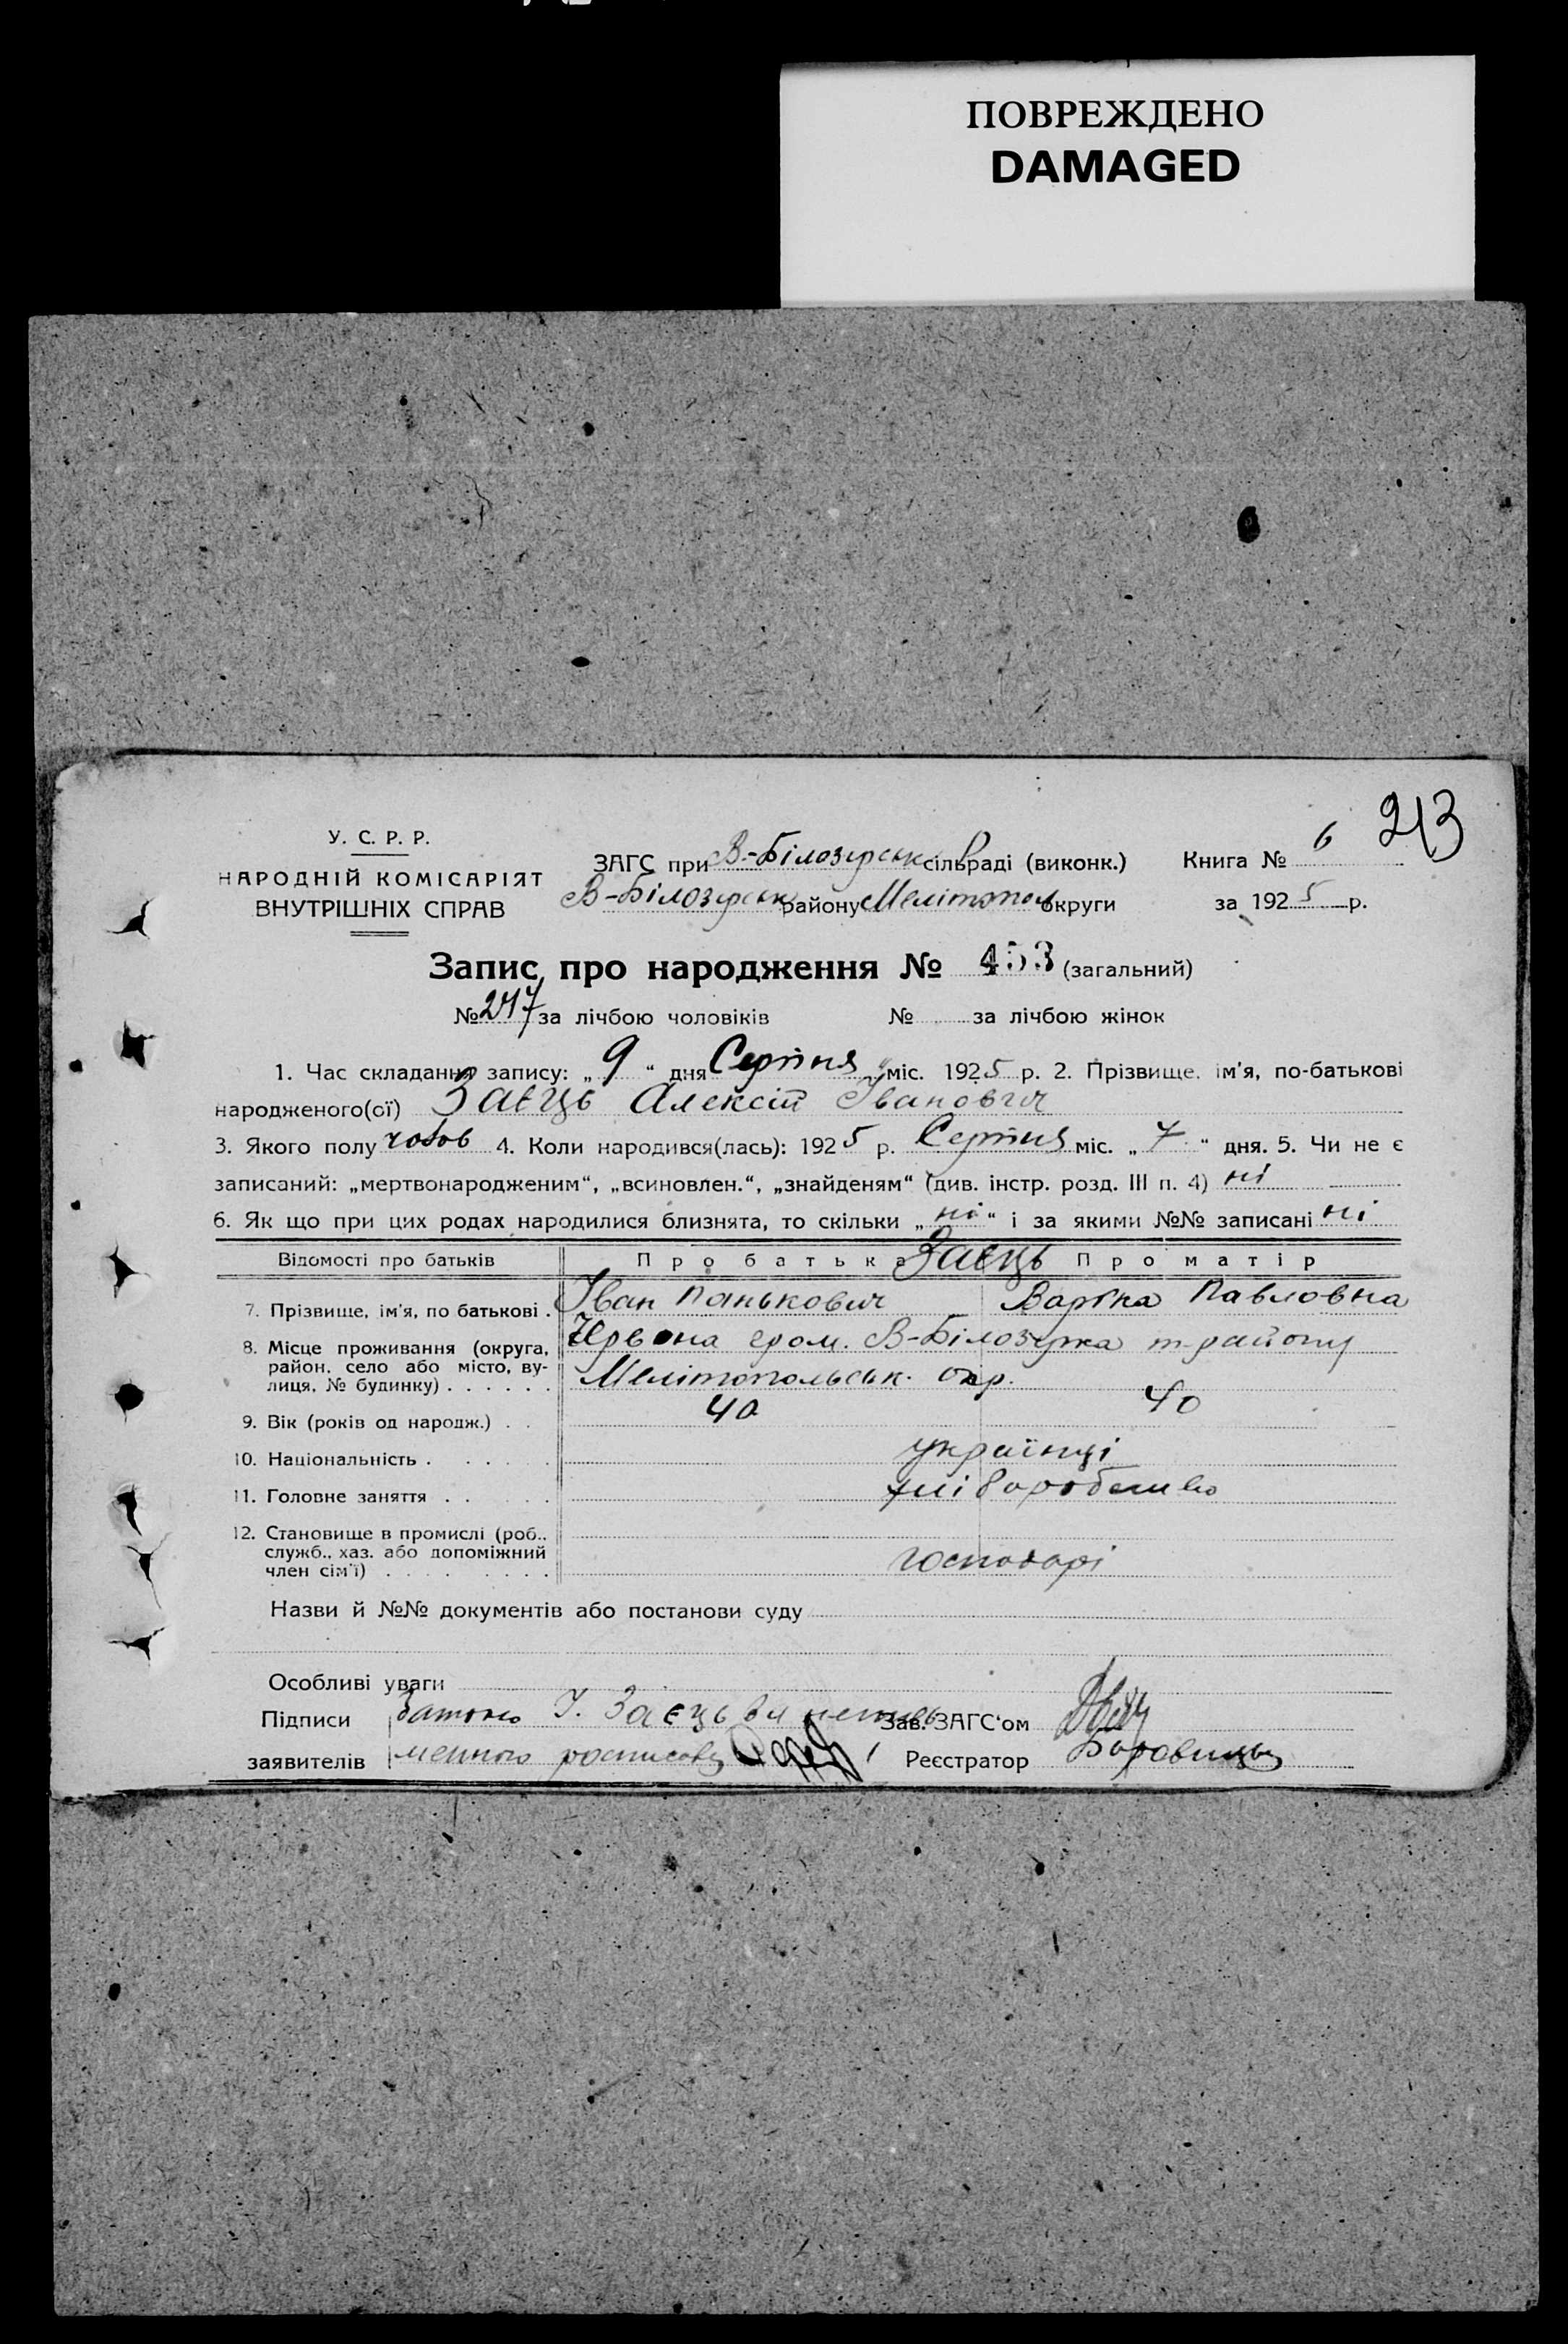 ПОВРЕЖДЕНО
DAMAGED
213
У. С. Р. Р.
НАРОДНІЙ КОМІСАРІЯТ
ВНУТРІШНІХ СПРАВ
ЗАГС при В-Білозірськ сільраді (виконк.) Книга № 6
В-Білозірськ району Мелітополь округи за 1925 р.
Запис про народження № 453 (загальний)
№ 247 за лічбою чоловіків № за лічбою жінок
1. Час складання запису: „ 9 “ дня Серпня міс. 1925 р. 2. Прізвище. ім'я, по-батькові
народженого(ої) Заєць Алексій Іванович
3. Якого полу чолов 4. Коли народився(лась): 1925 р. Серпня міс. „ 7 “ дня. 5. Чи не є
записаний: „мертвонародженим“, „всиновлен.“, „знайденям“ (див. інстр. розд. III п. 4) ні
6. Як що при цих родах народилися близнята, то скільки „ ні “ і за якими №№ записані ні
Відомості про батьків Про батька Заєць Про матір
7. Прізвище, ім'я, по батькові . Іван Панькович Варька Павловна
8. Місце проживання (округа, район. село або місто, вулиця, № будинку) . . . . . . Червона гром. В-Білозірка т-району
Мелітопольськ. окр.
9. Вік (років од народж.) . . 40 40
10. Національність . . . . . . українці
11. Головне заняття . . . . хліборобство
12. Становище в промислі (роб.. служб.. хаз. або допоміжний член сім'ї) . . . . . . . . господарі
Назви й №№ документів або постанови суду
Особливі уваги
Підписи Батько І. Заєць За Зав. ЗАГС‘ом
заявителів Реєстратор